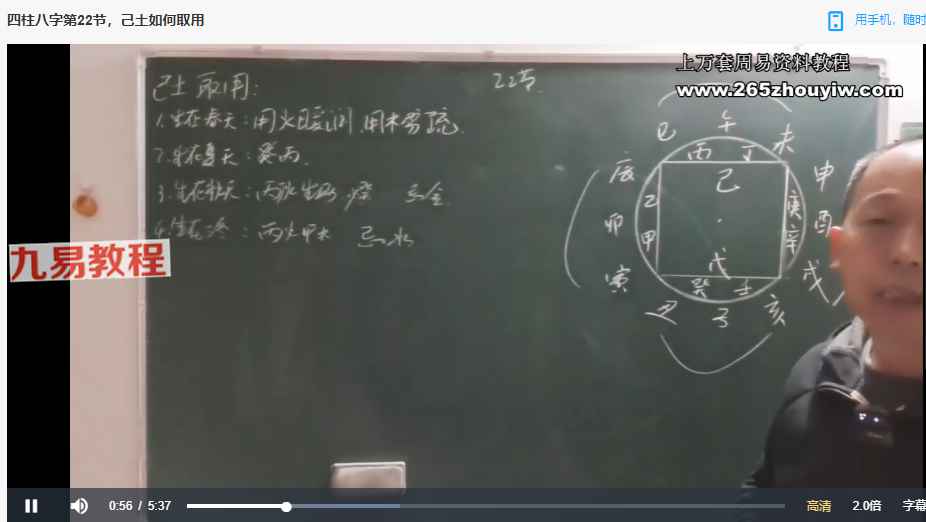 四柱八字第22节，己土如何取用
用手机，随时
上万套周易资料教程
www.265zhouyiw.com
己土取用：
22节
1.生在春天：用火暖 用木劳疏
2.生在夏天：癸丙.
3.生在秋天：丙 忌金
4.生在冬：丙火甲木 忌水
巳 午 未
丙 丁
辰 己 申
乙 庚
卯 酉
甲 辛
寅 戊 戌
癸 壬
丑 子 亥
九易教程
0:56 / 5:37
高清 2.0倍 字幕